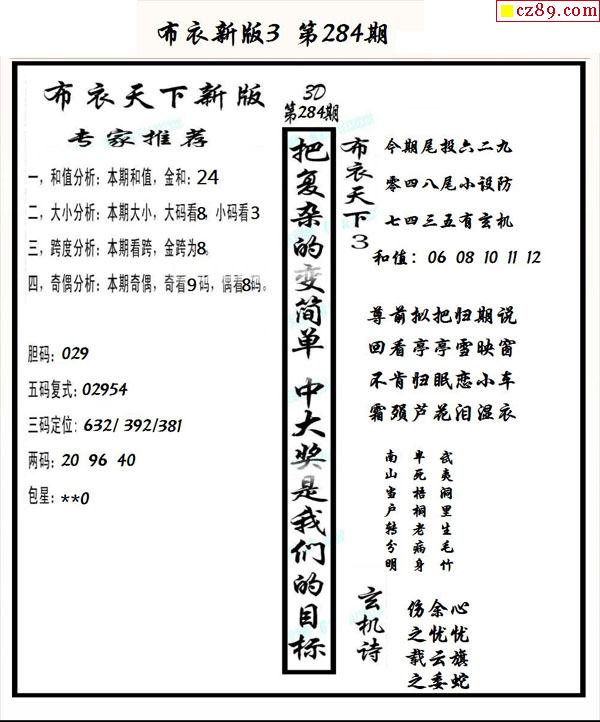 cz89.com
布衣新版3 第284期
布衣天下新版
专家推荐
一，和值分析：本期和值，金和：24
二，大小分析：本期大小，大码看8，小码看3
三，跨度分析：本期看跨，金跨为8。
四，奇偶分析：本期奇偶，奇看9码，偶看8码。
胆码：029
五码复式：02954
三码定位：632/ 392/381
两码：20 96 40
包星：**0
3D
第284期
把复杂的变简单 中大奖是我们的目标
布衣天下3
今期尾投六二九
零四八尾小设防
七四三五有玄机
和值：06 08 10 11 12
尊前拟把归期说
回看亭亭雪映窗
不肯归眠恋小车
霜须芦花泪湿衣
武夷洞里生毛竹
半死梧桐老病身
南山当户转分明
玄机诗
心忧旗蛇
余忧云委
伤之载之